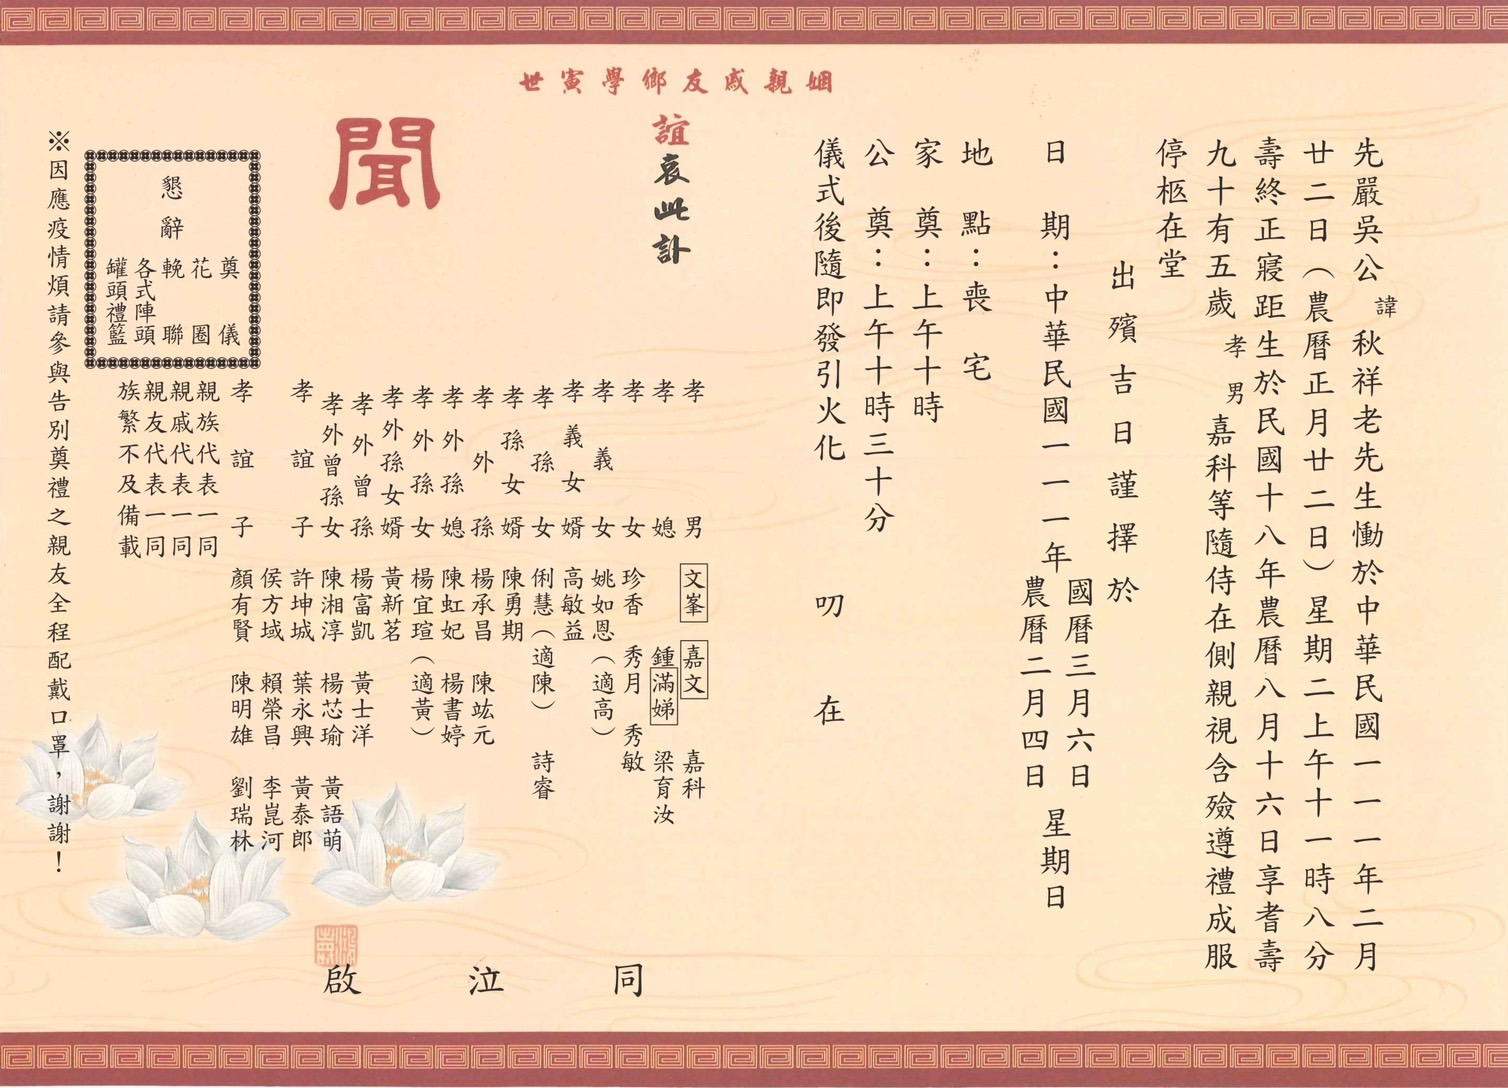 先嚴吳公諱秋祥老先生慟於中華民國一一一年二月
廿二日（農曆正月廿二日）星期二上午十一時八分
壽終正寢距生於民國十八年農曆八月十六日享耆壽
九十有五歲孝男嘉科等隨侍在側親視含殮遵禮成服
停柩在堂
出殯吉日謹擇於
日期：中華民國一一一年 國曆三月六日 農曆二月四日 星期日
地點：喪宅
家奠：上午十時
公奠：上午十時三十分
儀式後隨即發引火化
叨在
姻親戚友鄉學寅世
誼哀此訃
聞
孝男 文峯 嘉文 嘉科
孝媳 鍾滿娣 梁育汝
孝女 珍香 秀月 秀敏
孝義女 姚如恩（適高）
孝義女婿 高敏益
孝孫女 俐慧（適陳） 詩睿
孝孫女婿 陳勇期
孝外孫 楊承昌 陳竑元
孝外孫媳 陳虹妃 楊書婷
孝外孫女 楊宜瑄（適黃）
孝外孫女婿 黃新茗
孝外曾孫 楊富凱 黃士洋
孝外曾孫女 陳湘淳 楊芯瑜 黃語萌
孝誼子 許坤城 葉永興 黃泰郎
侯方域 賴榮昌 李崑河
孝誼子 顏有賢 陳明雄 劉瑞林
親族代表一同
親戚代表一同
親友代表一同
族繁不及備載
同泣啟
懇辭
奠儀
花圈
輓聯
各式陣頭
罐頭禮籃
※因應疫情煩請參與告別奠禮之親友全程配戴口罩，謝謝！